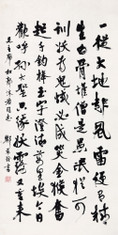 一從大地起風雷便有精
生白骨堆僧是愚氓猶可
訓妖為鬼蜮必成災金猴奮
起千鈞棒玉宇澄清萬里埃今日
歡呼孫大聖只緣妖霧又重來
毛主席和郭沫若同志